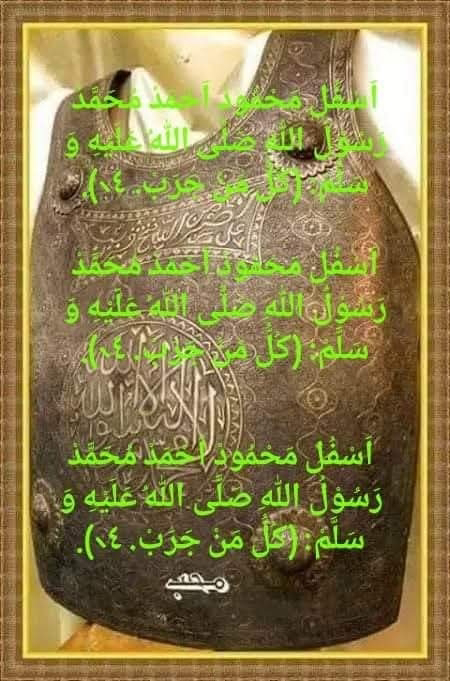 اَسْفُلْ مَحْمُودْ اَحْمَدْ مُحَمَّدْ
رَسُوْلُ اللهِ صَلَّى اللهُ عَلَيْهِ وَ
سَلَّمْ: (كُلُّ مَنْ جَرَبْ.
اَسْفُلْ مَحْمُودْ اَحْمَدْ مُحَمَّدْ
رَسُوْلُ اللهِ صَلَّى اللهُ عَلَيْهِ وَ
سَلَّمْ: (كُلُّ مَنْ جَرَبْ.
اَسْفُلْ مَحْمُودْ اَحْمَدْ مُحَمَّدْ
رَسُوْلُ اللهِ صَلَّى اللهُ عَلَيْهِ وَ
سَلَّمْ: (كُلُّ مَنْ جَرَبْ.
محب